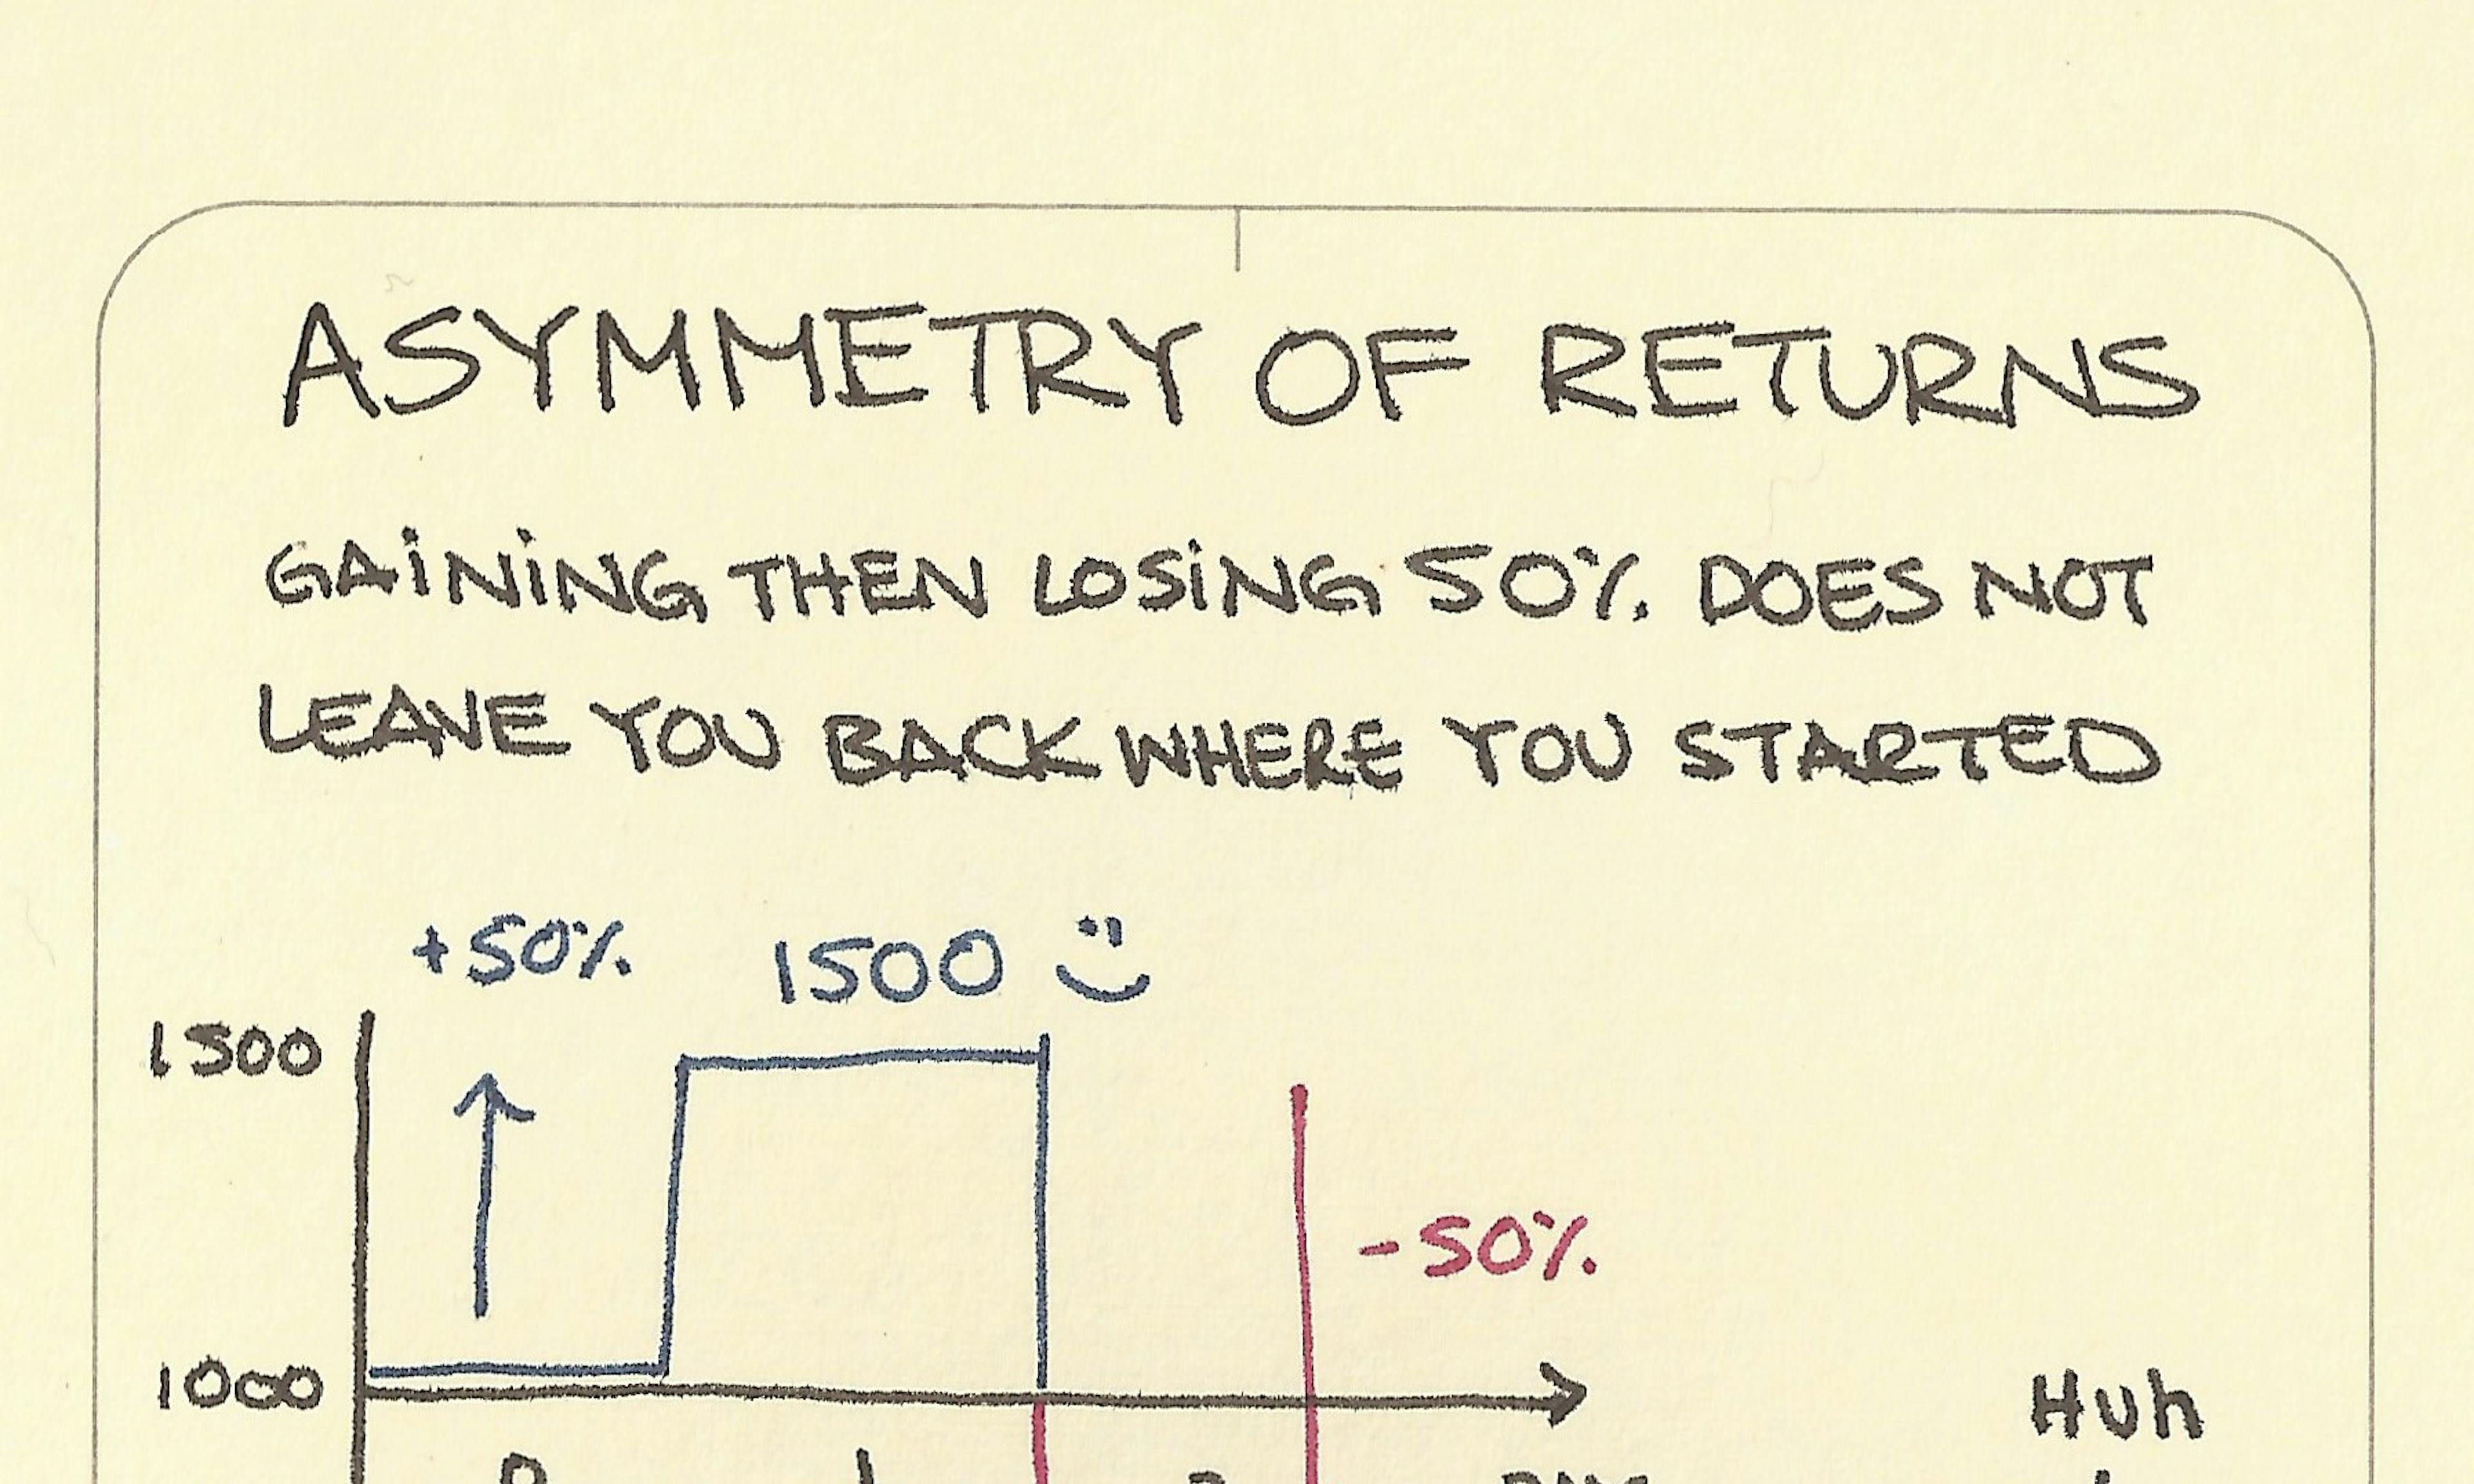 ASYMMETRY OF RETURNS
GAINING THEN LOSING 50% DOES NOT
LEAVE YOU BACK WHERE YOU STARTED
+50% 1500 :)
1500
-50%
1000
Huh